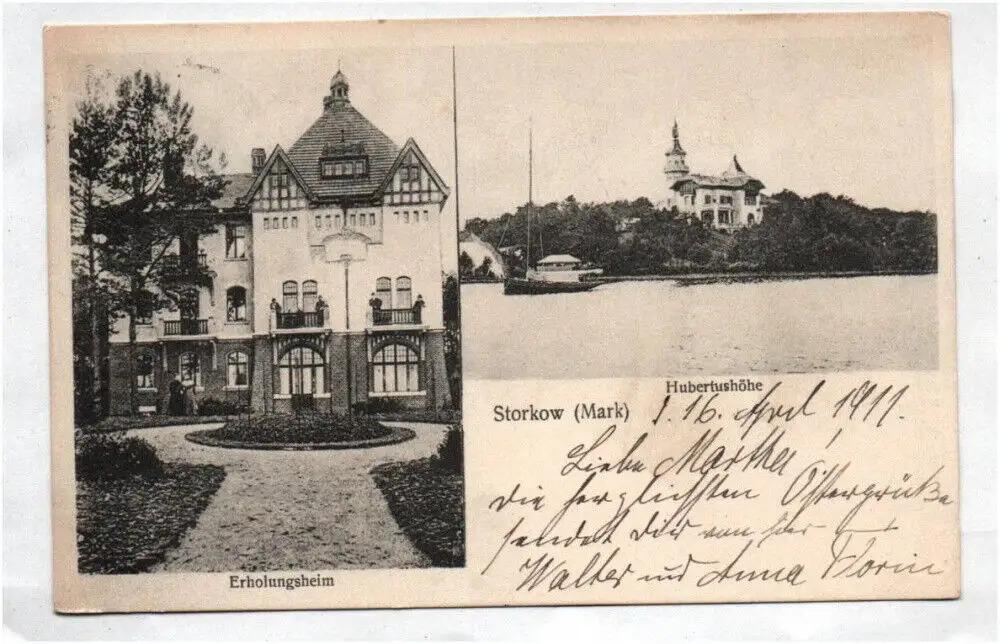 Erholungsheim
Hubertushöhe
Storkow (Mark)
16. April 1911.
Liebe Martha!
die herzlichsten Ostergrüße
sendet Dir von hier
Walter und Anna